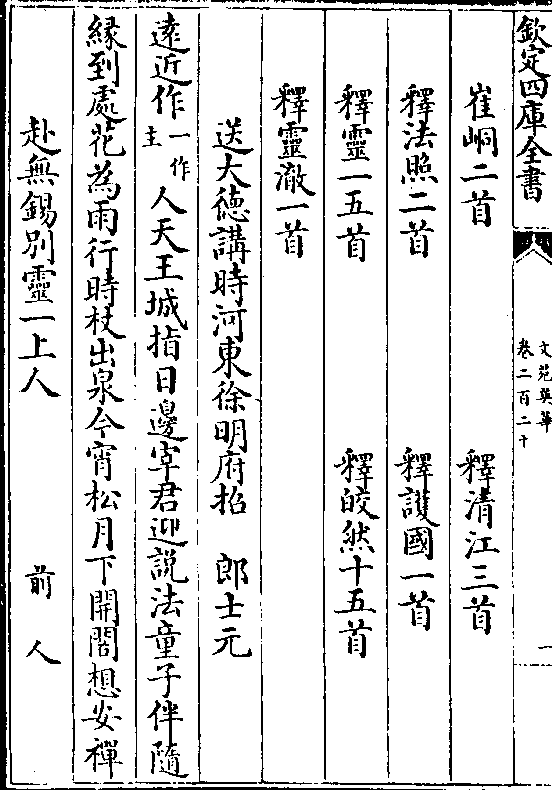 欽定四庫全書
文苑英華
卷二百二十
一
崔峒二首
釋清江三首
釋法照二首
釋䕶國一首
釋靈一五首
釋皎然十五首
釋靈澈一首
送大德講時河東徐明府招 郎士元
逺近作一作主人天王城指日邊宰君迎説法童子伴隨
縁到處花為雨行時杖出泉今宵松月下開閣想安禪
赴無錫别靈一上人 前人